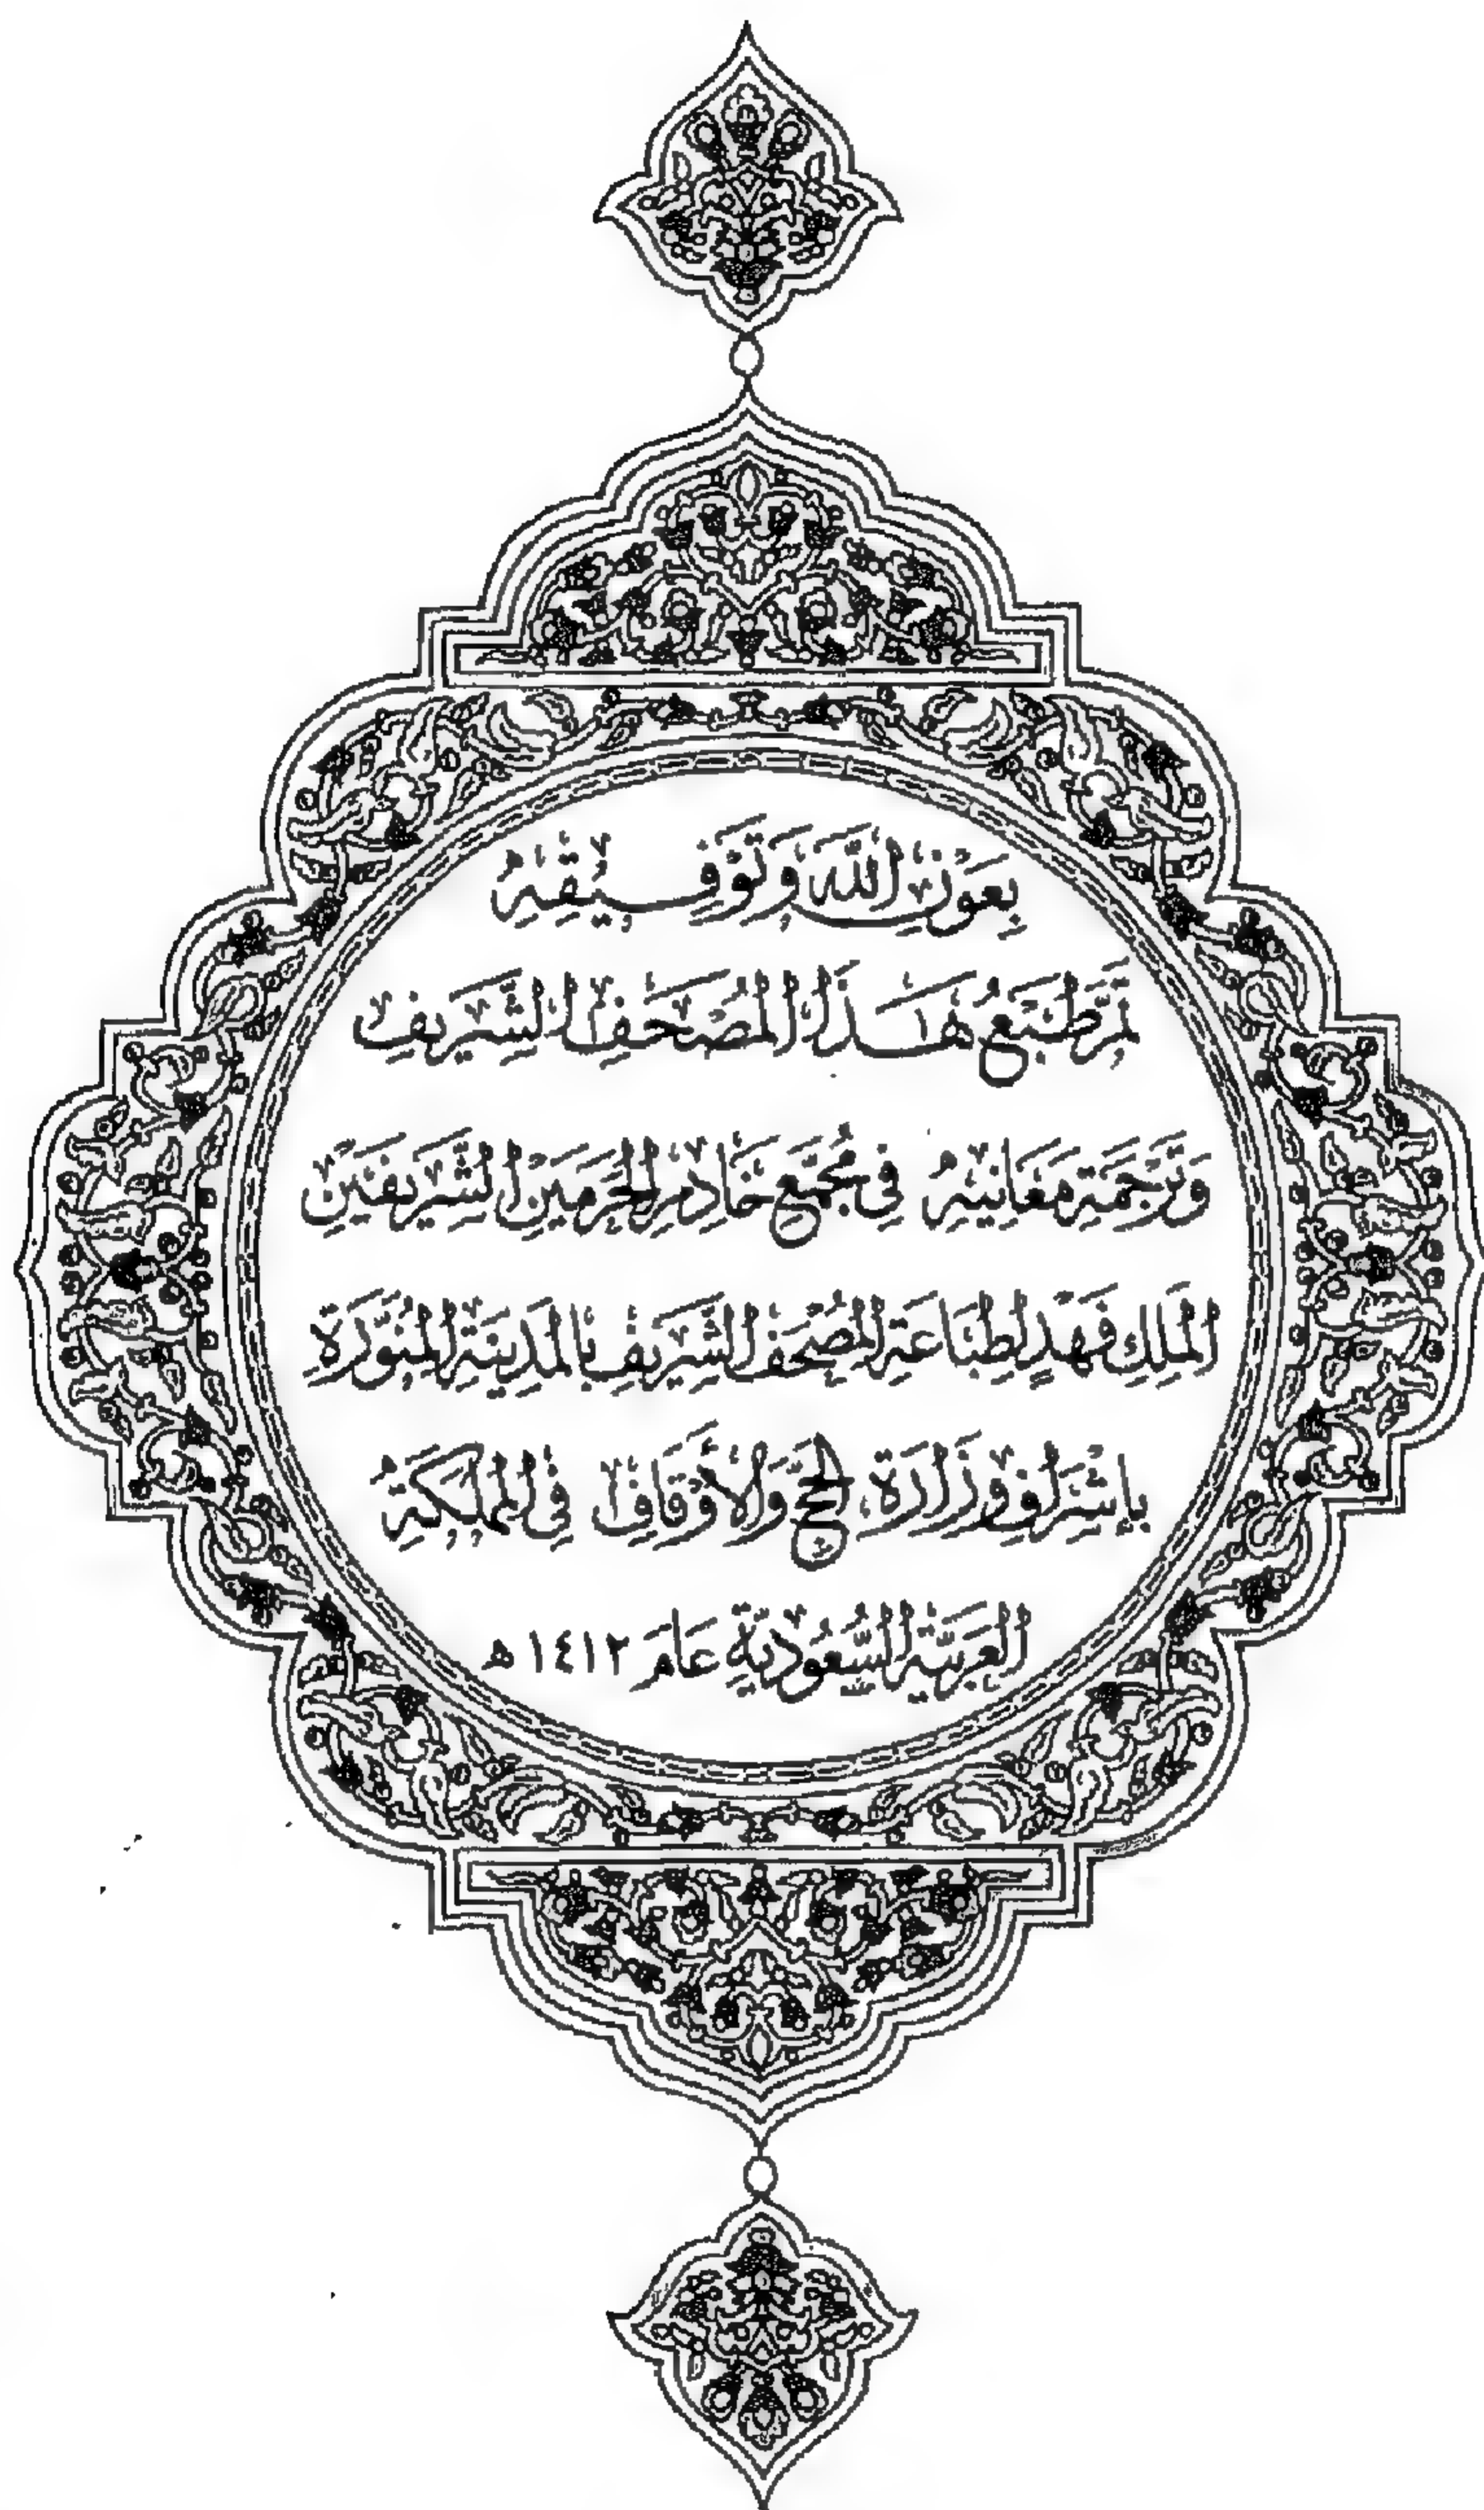 بِعَوْنِ اللهِ وَتَوْفِيْقِهِ
تَمَّ طَبْعُ هَٰذَا الْمُصْحَفِ الشَّرِيفِ
وَتَرْجَمَةِ مَعَانِيْهِ فِي مُجَمَّعِ خَادِمِ الْحَرَمَيْنِ الشَّرِيفَيْنِ
الْمَلِكِ فَهْدٍ لِطِبَاعَةِ الْمُصْحَفِ الشَّرِيفِ بِالْمَدِينَةِ الْمُنَوَّرَةِ
بِإِشْرَافِ وَزَارَةِ الْحَجِّ وَالْأَوْقَافِ فِي الْمَمْلَكَةِ
الْعَرَبِيَّةِ السُّعُودِيَّةِ عَامَ ١٤١٢ ه